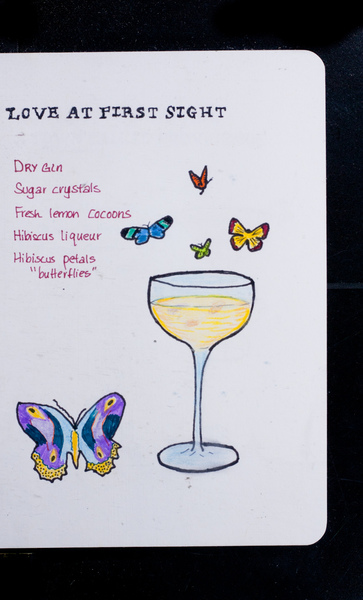 LOVE AT FIRST SIGHT
DRY GIN
Sugar crystals
Fresh lemon Cocoons
Hibiscus liqueur
Hibiscus petals
"butterflies"